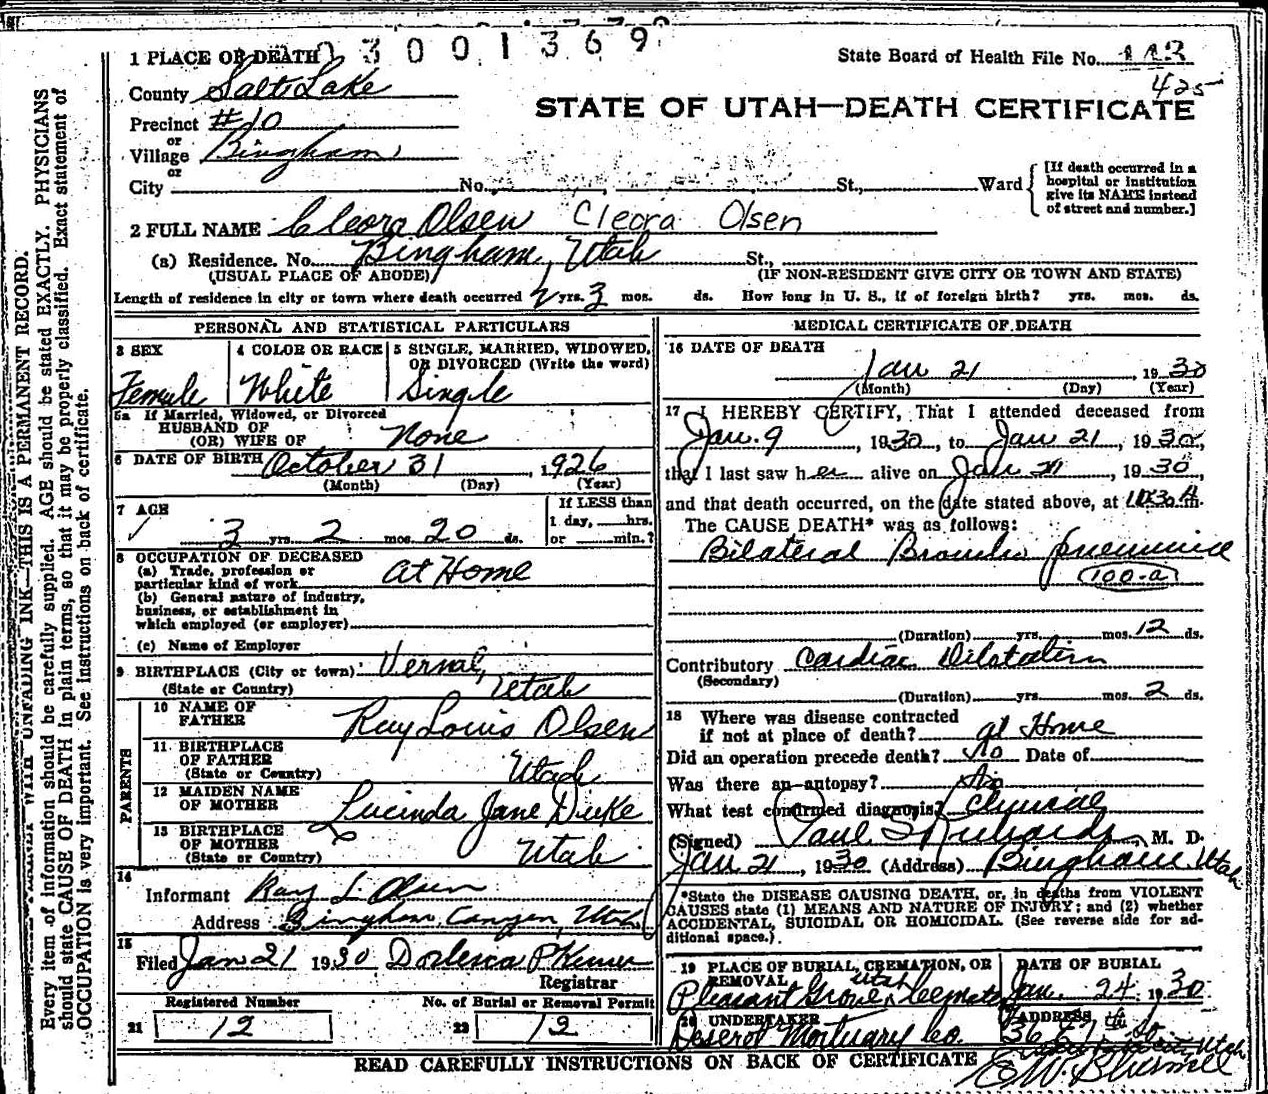 3001369
1 PLACE OF DEATH
State Board of Health File No. 113
425
County Salt Lake
STATE OF UTAH—DEATH CERTIFICATE
Precinct #10
or
Village Bingham
or
City No. St., Ward
[If death occurred in a hospital or institution give its NAME instead of street and number.]
2 FULL NAME Cleora Olsen Cleora Olsen
(a) Residence. No. Bingham, Utah St.,
(USUAL PLACE OF ABODE) (IF NON-RESIDENT GIVE CITY OR TOWN AND STATE)
Length of residence in city or town where death occurred 2 yrs. 3 mos. ds. How long in U. S., if of foreign birth? yrs. mos. ds.
PERSONAL AND STATISTICAL PARTICULARS
3 SEX 4 COLOR OR RACE 5 SINGLE, MARRIED, WIDOWED,
OR DIVORCED (Write the word)
Female White Single
5a If Married, Widowed, or Divorced
HUSBAND OF
(OR) WIFE OF None
6 DATE OF BIRTH October 31, 1926
(Month) (Day) (Year)
7 AGE If LESS than
1 day, hrs.
3 yrs. 2 mos. 20 ds. or min.?
8 OCCUPATION OF DECEASED
(a) Trade, profession or
particular kind of work At Home
(b) General nature of industry,
business, or establishment in
which employed (or employer)
(c) Name of Employer
9 BIRTHPLACE (City or town) Vernal,
(State or Country) Utah
PARENTS
10 NAME OF
FATHER Ray Louis Olsen
11 BIRTHPLACE
OF FATHER
(State or Country) Utah
12 MAIDEN NAME
OF MOTHER Lucinda Jane
13 BIRTHPLACE
OF MOTHER
(State or Country) Utah
14
Informant Ray L. Olsen
Address Bingham Canyon, Utah
15
Filed Jan 21 1930
Registrar
Registered Number No. of Burial or Removal Permit
21 12 22 12
MEDICAL CERTIFICATE OF DEATH
16 DATE OF DEATH
Jan 21, 1930
(Month) (Day) (Year)
17 I HEREBY CERTIFY, That I attended deceased from
Jan. 9, 1930, to Jan 21, 1930,
that I last saw her alive on Jan 21, 1930
and that death occurred, on the date stated above, at m.
The CAUSE DEATH* was as follows:
Bilateral Broncho pneumonia
100-a
(Duration) yrs. mos. 12 ds.
Contributory Cardiac Dilatation
(Secondary)
(Duration) yrs. mos. 2 ds.
18 Where was disease contracted
if not at place of death? at Home
Did an operation precede death? No Date of
Was there an autopsy? No
What test confirmed diagnosis? Clynical
(Signed) Paul S Richards, M. D.
Jan 21, 1930 (Address) Bingham Utah
*State the DISEASE CAUSING DEATH, or, in deaths from VIOLENT
CAUSES state (1) MEANS AND NATURE OF INJURY; and (2) whether
ACCIDENTAL, SUICIDAL OR HOMICIDAL. (See reverse side for ad-
ditional space.)
19 PLACE OF BURIAL, CREMATION, OR DATE OF BURIAL
REMOVAL Utah
Pleasant Grove, Jan. 24, 1930
20 UNDERTAKER ADDRESS
Deseret Mortuary Co. 36 E 7th So
READ CAREFULLY INSTRUCTIONS ON BACK OF CERTIFICATE
UNFADING INK—THIS IS A PERMANENT RECORD.
Every item of information should be carefully supplied. AGE should be stated EXACTLY. PHYSICIANS
should state CAUSE OF DEATH in plain terms, so that it may be properly classified. Exact statement of
OCCUPATION is very important. See instructions on back of certificate.